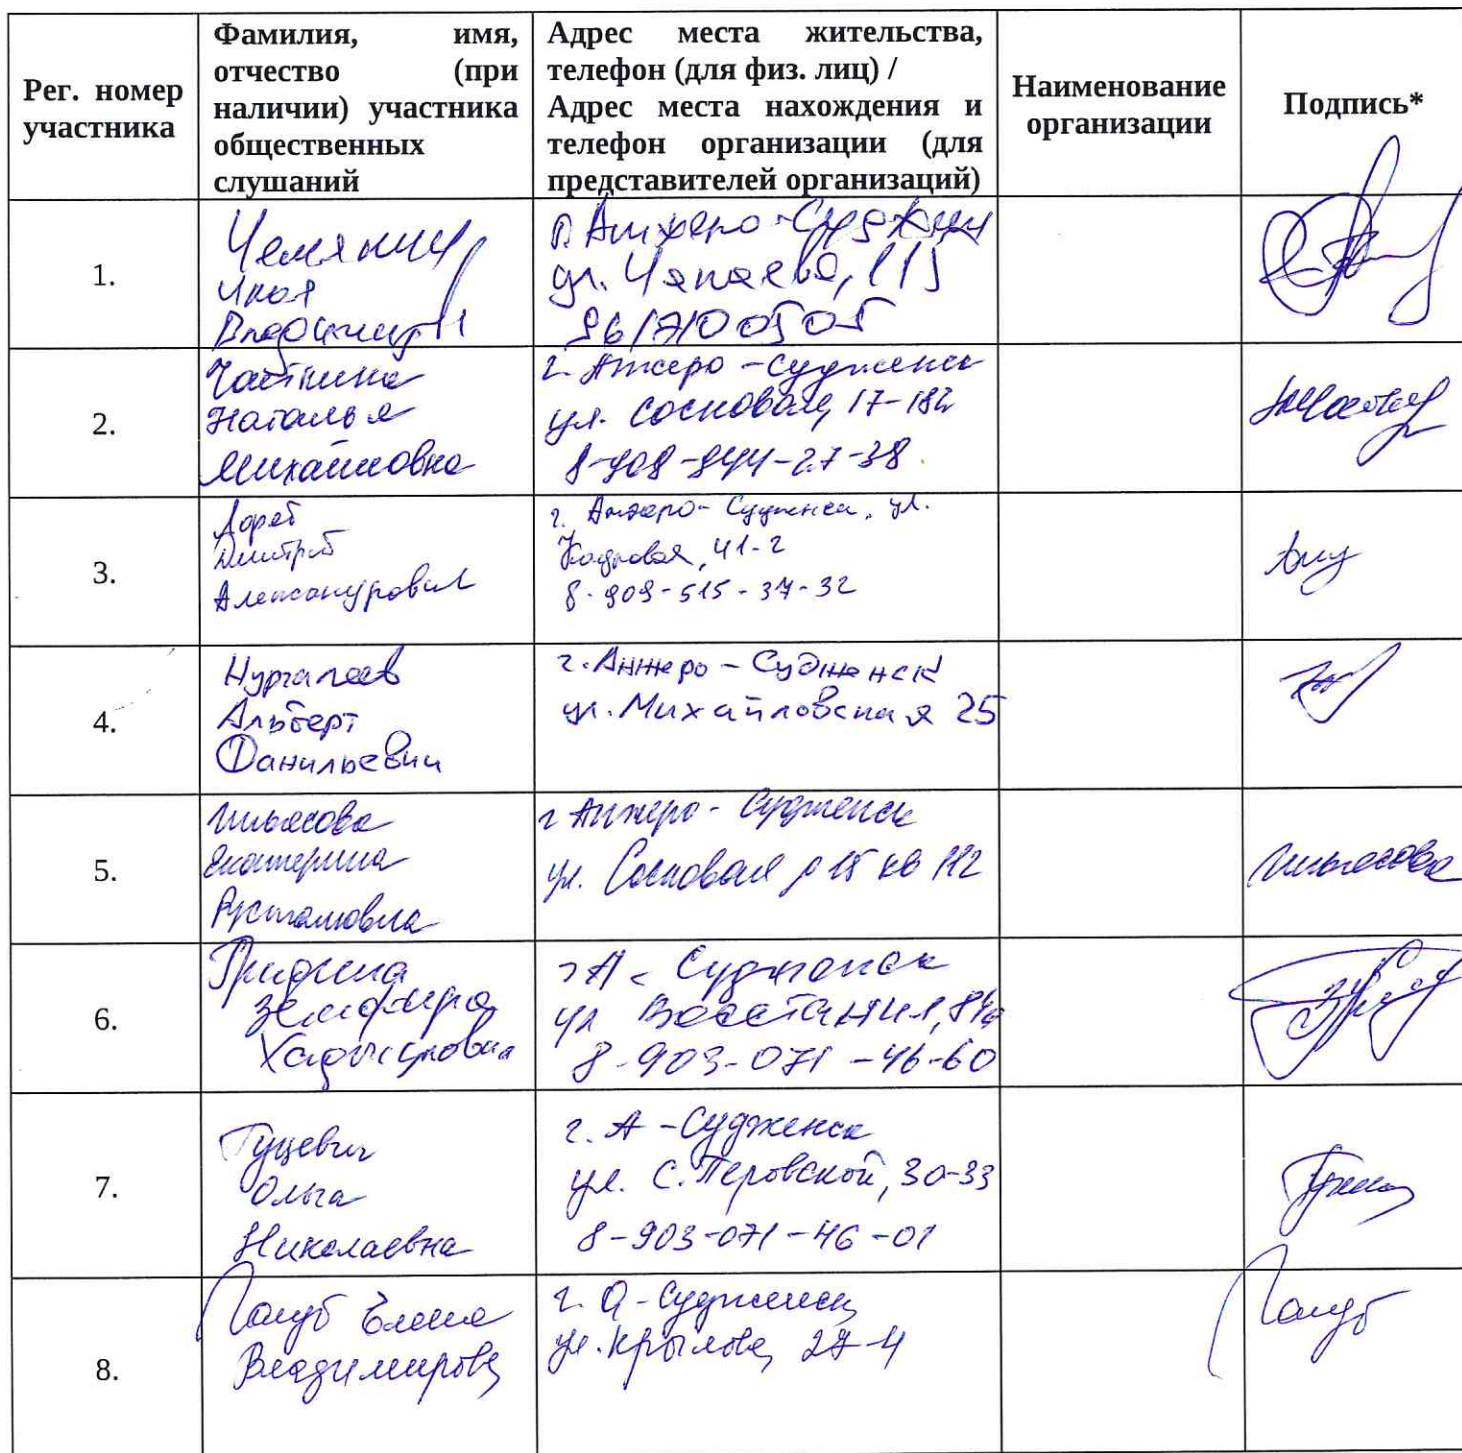 Рег. номер
участника
Фамилия, имя,
отчество (при
наличии) участника
общественных
слушаний
Адрес места жительства,
телефон (для физ. лиц) /
Адрес места нахождения и
телефон организации (для
представителей организаций)
Наименование
организации
Подпись*
1.
Илья
г. Анжеро-Судженск
ул. Чапаева, 115
2.
Наталья
Михайловна
г. Анжеро-Судженск
ул. Сосновая, 17-182
8-908-944-27-38
3.
Александрович
г. Анжеро-Судженск, ул.
Кадровая, 41-2
8-909-515-37-32
4.
Нургалеев
Альберт
Данильевич
г. Анжеро-Судженск
ул. Михайловская 25
5.
Ильясова
Екатерина
Рустамовна
г Анжеро-Судженск
ул. Сосновая д 15 кв 112
Ильясова
6.
Гридина
Земфира
г А-Судженск
ул Восстания, 84а
8-903-071-46-60
7.
Гуцевич
Ольга
Николаевна
г. А-Судженск
ул. С. Перовской, 30-33
8-903-071-46-01
8.
Голуб Елена
Владимировна
г. А-Судженск
ул. Крылова, 27-4
Голуб